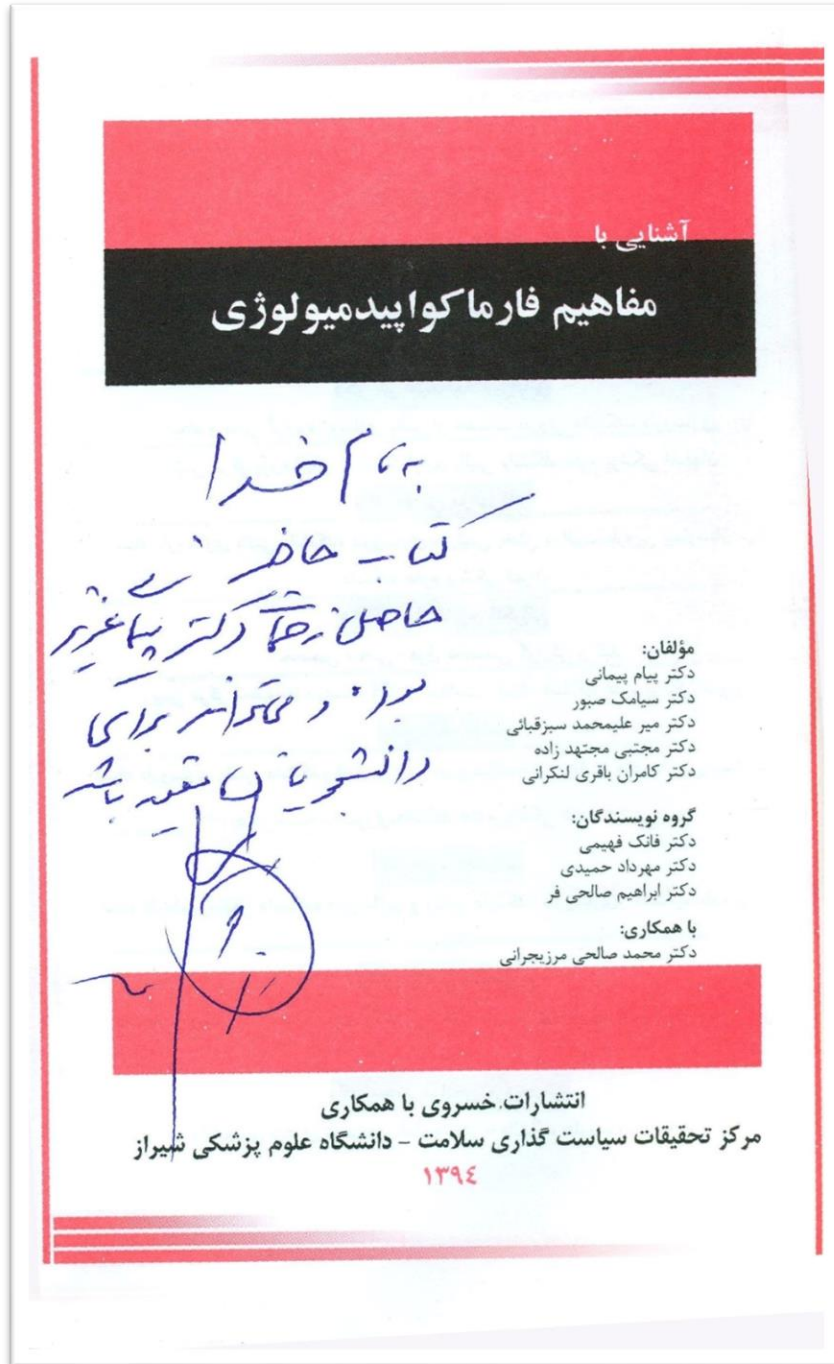 آشنایی با
مفاهیم فارماکواپیدمیولوژی
به نام خدا
کتاب حاضر
حاصل زحمات دکتر پیام عزیز
بوده و می‌تواند برای
دانشجویان مفید باشد
مؤلفان:
دکتر پیام پیمانی
دکتر سیامک صبور
دکتر میر علیمحمد سبزقبائی
دکتر مجتبی مجتهد زاده
دکتر کامران باقری لنکرانی
گروه نویسندگان:
دکتر فانک فهیمی
دکتر مهرداد حمیدی
دکتر ابراهیم صالحی فر
با همکاری:
دکتر محمد صالحی مرزیجرانی
انتشارات خسروی با همکاری
مرکز تحقیقات سیاست گذاری سلامت - دانشگاه علوم پزشکی شیراز
۱۳۹٤